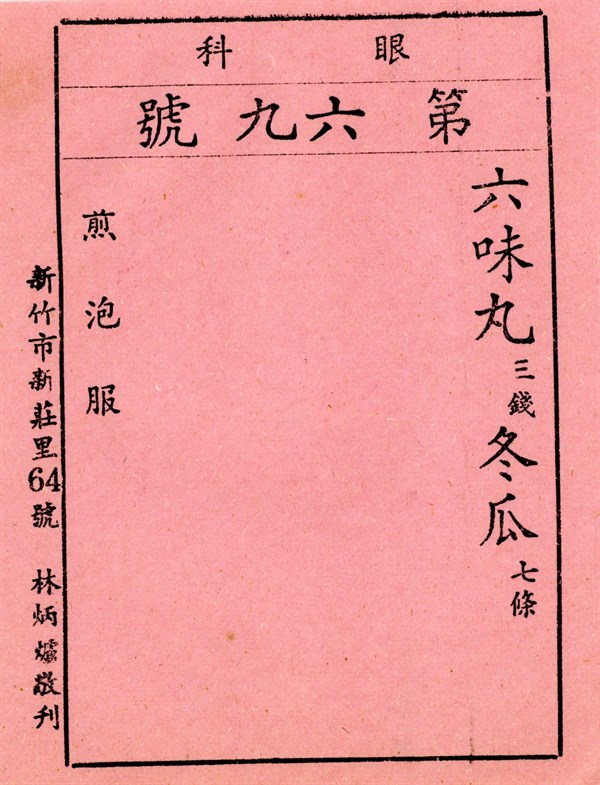 眼科
第六九號
六味丸三錢冬瓜七條
煎泡服
新竹市新莊里64號 林炳爐敬刊